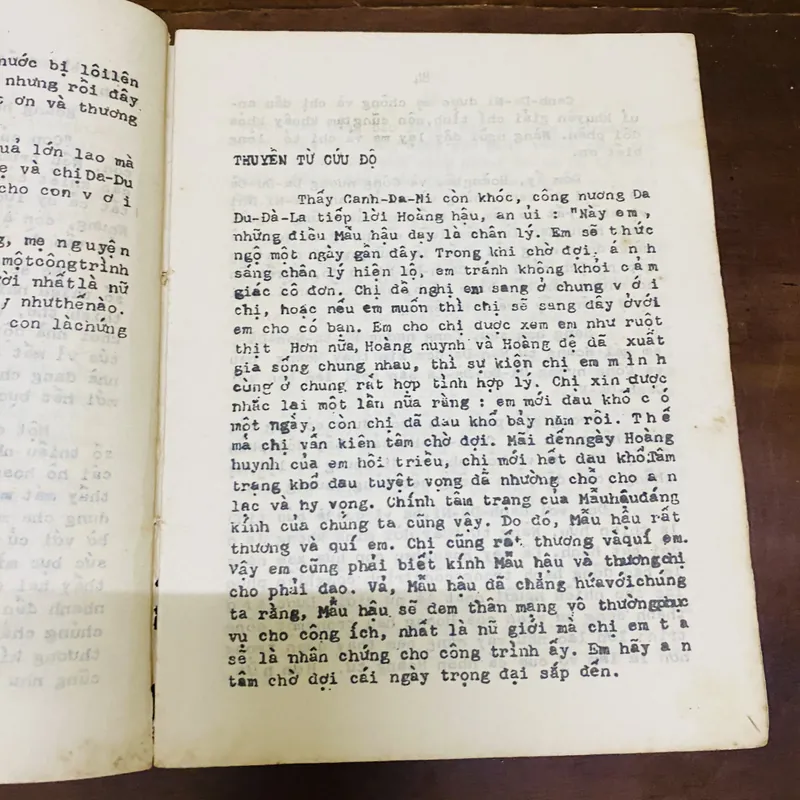 nước bị lôilên
nhưng rồi đây
ơn và thương
quả lớn lao mà
và chị Da-Du
cho con v ở i
mẹ nguyên
mộtcôngtrình
nhấtlà nữ
nhưthếnào.
con làchứng
THUYỀN TỪ CỨU ĐỘ
Thấy Canh-Da-Ni còn khóc, công nương Da
Du-Đà-La tiếp lời Hoàng hậu, an ủi : "Này em ,
những điều Mẫu hậu dạy là chân lý. Em sẽ thức
ngộ một ngày gần đây. Trong khi chờ đợi, á n h
sáng chân lý hiện lộ, em tránh không khỏi c ảm
giác cô đơn. Chị đề nghị em sang ở chung v ớ i
chị, hoặc nếu em muốn thì chị sẽ sang đây ởvới
em cho có bạn. Em cho chị được xem em như ruột
thịt Hơn nữa, Hoàng huynh và Hoàng đệ đã xuất
gia sống chung nhau, thì sự kiện chị em m ì n h
cùng ở chung rất hợp tình hợp lý. Chị xin được
nhắc lại một lần nữa rằng : em mới đau khổ c ó
một ngày, còn chị đã đau khổ bảy năm rồi. T h ế
mà chị vẫn kiên tâm chờ đợi. Mãi đếnngày Hoàng
huynh của em hồi triều, chị mới hết đau khổ.Tâm
trạng khổ đau tuyệt vọng đã nhường chỗ cho a n
lạc và hy vọng. Chính tâm trạng của Mẫuhậuđáng
kính của chúng ta cũng vậy. Do đó, Mẫu hậu rất
thương và quí em. Chị cũng rất thương vàquí em.
Vậy em cũng phải biết kính Mẫu hậu và thươngchị
cho phải đạo. Vả, Mẫu hậu đã chẳng hứavớichúng
ta rằng, Mẫu hậu sẽ đem thân mạng vô thườngphục
vụ cho công ích, nhất là nữ giới mà chị em t a
sẽ là nhân chứng cho công trình ấy. Em hãy a n
tâm chờ đợi cái ngày trọng đại sắp đến.